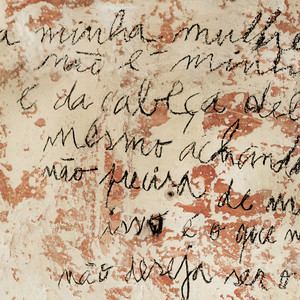 a minha mulhe
não é minh
e da cabeça del
mesmo achand
não precisa de m
isso é o que m
não deseja ser o